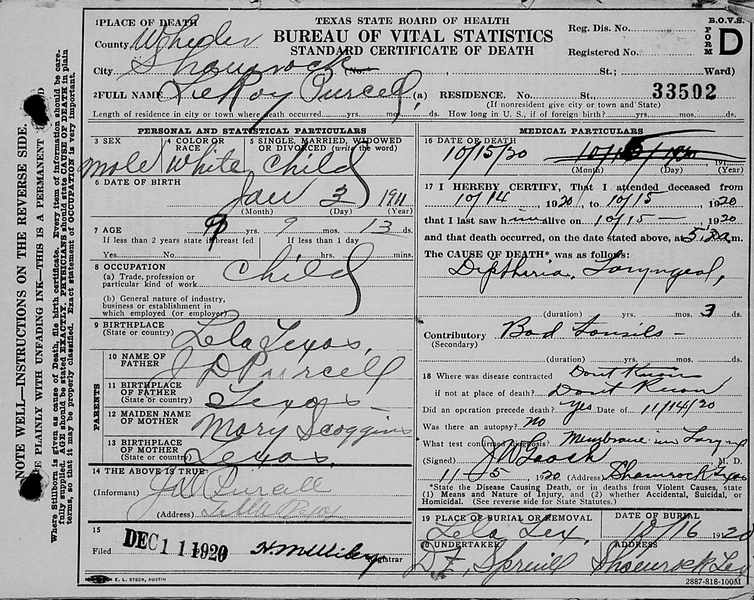 NOTE WELL—INSTRUCTIONS ON THE REVERSE SIDE.
PLAINLY WITH UNFADING INK—THIS IS A PERMANENT
Where Stillborn is given as cause of Death, file birth certificate. Every item of information should be care-
fully supplied. AGE should be stated EXACTLY. PHYSICIANS should state CAUSE OF DEATH in plain
terms, so that it may be properly classified. Exact statement of OCCUPATION is very important.
1 PLACE OF DEATH
TEXAS STATE BOARD OF HEALTH
B.O.V.S.
BUREAU OF VITAL STATISTICS
STANDARD CERTIFICATE OF DEATH
Reg. Dis. No.
FORM D
County Wheeler
Registered No.
City Shamrock (No. St.; Ward)
2 FULL NAME LeRoy Purcell (a) RESIDENCE. No. St., 33502
(If nonresident give city or town and State)
Length of residence in city or town where death occurred yrs. mos. ds. How long in U. S., if of foreign birth? yrs. mos. ds.
PERSONAL AND STATISTICAL PARTICULARS
3 SEX 4 COLOR OR RACE 5 SINGLE, MARRIED, WIDOWED OR DIVORCED (write the word)
male White Child
6 DATE OF BIRTH
Jan 2 1911
(Month) (Day) (Year)
7 AGE 9 yrs. 9 mos. 13 ds.
If less than 2 years state if breast fed If less than 1 day
Yes No hrs. min.
8 OCCUPATION
(a) Trade, profession or
particular kind of work Child
(b) General nature of industry,
business or establishment in
which employed (or employer)
9 BIRTHPLACE
(State or country) Lela Texas
PARENTS
10 NAME OF
FATHER J D Purcell
11 BIRTHPLACE
OF FATHER
(State or country) Texas
12 MAIDEN NAME
OF MOTHER Mary Scoggins
13 BIRTHPLACE
OF MOTHER
(State or country) Texas
14 THE ABOVE IS TRUE
(Informant)
(Address)
15
Filed DEC 11 1920
Registrar
E. L. STECK, AUSTIN
MEDICAL PARTICULARS
16 DATE OF DEATH
10/15/20
17 I HEREBY CERTIFY, That I attended deceased from
10/14, 1920, to 10/15, 1920
that I last saw him alive on 10/15 – , 1920
and that death occurred, on the date stated above, at m.
The CAUSE OF DEATH* was as follows:
Diptheria, Laryngeal,
(duration) yrs. mos. 3 ds.
Contributory Bad tonsils –
(Secondary)
(duration) yrs. mos. ds.
18 Where was disease contracted Dont Know
if not at place of death? Dont Know
Did an operation precede death? yes Date of 11/14/20
Was there an autopsy? no
What test confirmed diagnosis? Membrane in Larynx
(Signed) M. D.
11-5 1920 (Address) Shamrock Tex
*State the Disease Causing Death, or in deaths from Violent Causes, state
(1) Means and Nature of Injury, and (2) whether Accidental, Suicidal, or
Homicidal. (See reverse side for State Statutes.)
19 PLACE OF BURIAL OR REMOVAL DATE OF BURIAL
Lela Tex, 10/16 1920
20 UNDERTAKER ADDRESS
Shamrock Tex
2887-818-100M